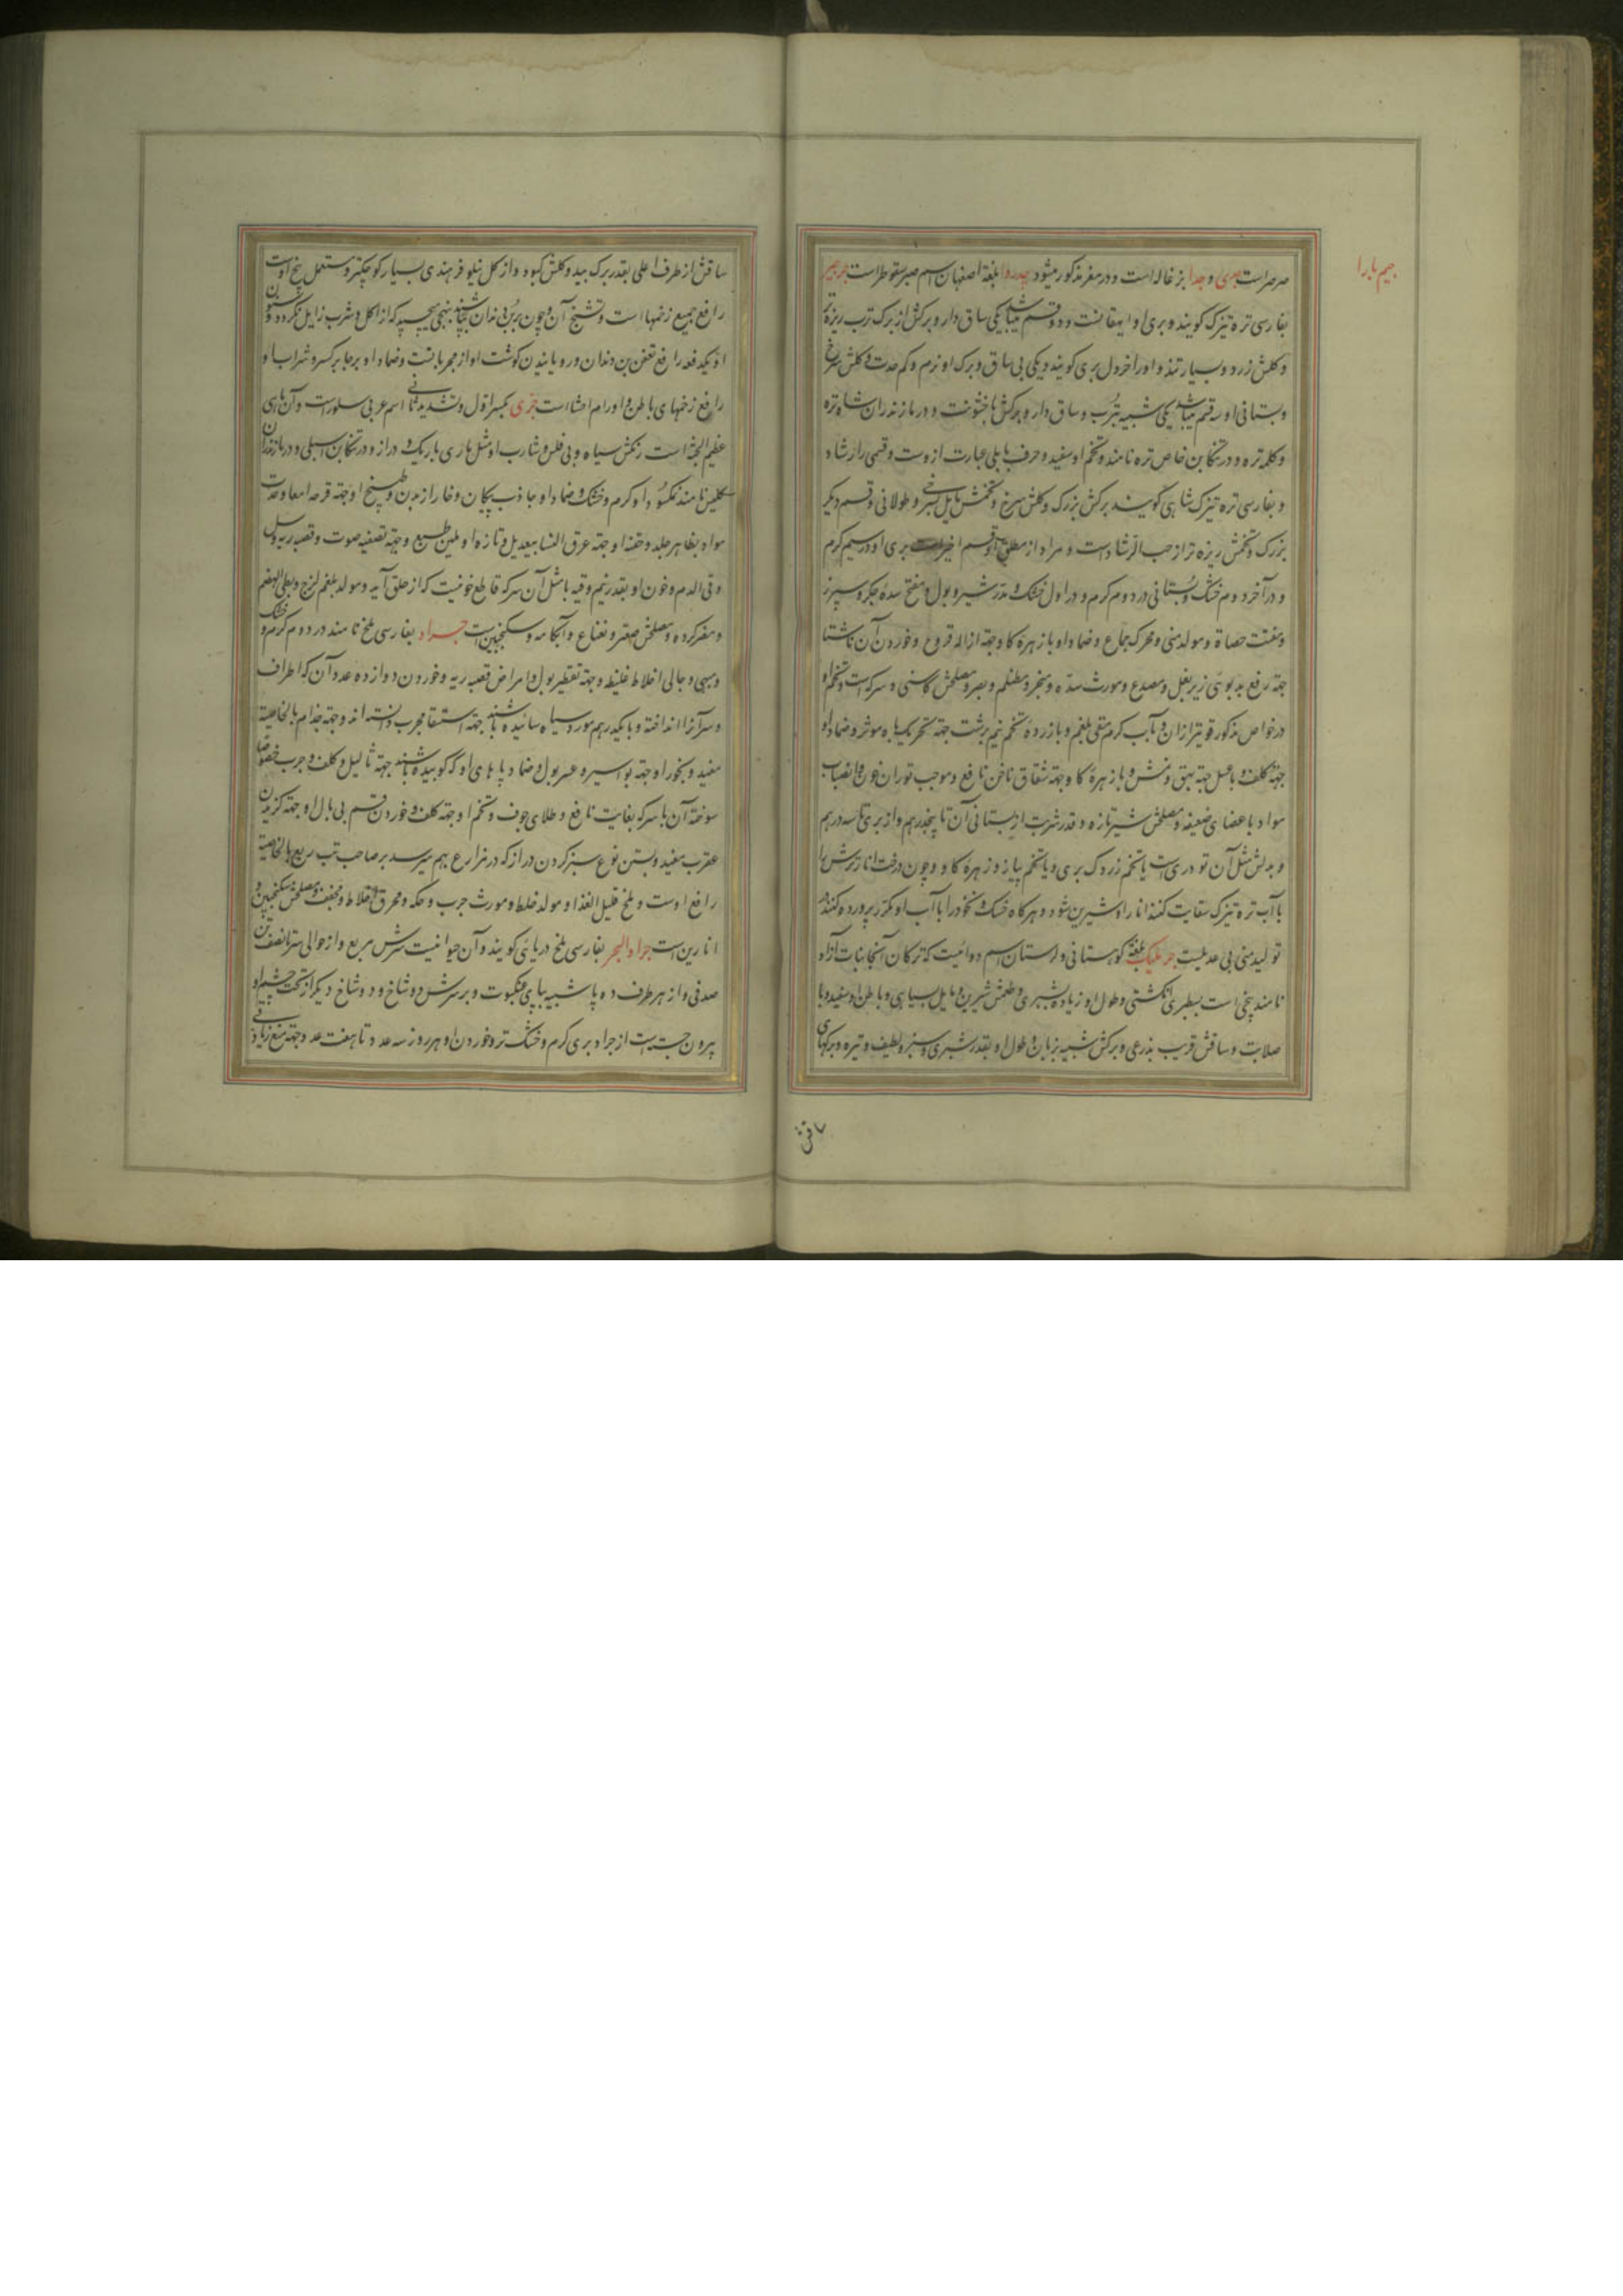 جیم با را
صرصر است جدی و جدا بزغاله است و در معز مذکور میشود جدوا بلغة اصفهان اسم صبر سقوطر است جرجیر
بفارسی تره تیزک کویند و بری او ایهقانست و دو قسم میباشد یکی ساق دار و برکش از برک ترب ریزه تر
و کلش زرد و بسیار تند و او را خردل بری کویند و یکی بی ساق و برک او نرم و کم حدت و کلش سرخ
و بستانی او سه قسم میباشد یکی شبیه بترب و ساق دار و برکش با خشونت و در مازندران شاه تره
و کلمه تره و در تنکابن خاص تره نامند و تخم او سفید و حرف بابلی عبارت ازوست و قسمی را رشاد
و بفارسی تره تیزک شاهی کویند برکش بزرک و کلش سرخ و تخمش مایل بسرخی و طولانی و قسم دیکر
بزرک و تخمش ریزه تر از حب الرشاد است و مراد از مطلق او قسم اخیر است بری او در سیم کرم
و در آخر دوم خشک و بستانی در دوم کرم و در اول خشک و مدر شیر و بول و مفتح سده جکر و سپرز
و مفتت حصاة و مولد منی و محرک جماع و ضماد او با زهره کاو جهة ازاله قروح و خوردن آن ناشتا
جهة رفع بدبوئی زیر بغل و مصدع و مورث سده و مبخر و مظلم و بصر و مصلحش کاسنی و سرکه است و تخم او
در خواص مذکور قویتر ازان و با آب کرم مقی بلغم و با زرده تخم نیم برشت جهة تحریک باه موثر و ضماد او
جهة کلف و با عسل جهة بهق و نمش و با زهره کاو جهة شقاق ناخن نافع و موجب ثوران خون و انصباب
مواد باعضای ضعیفه و مصلحش شیر تازه و قدر شربت از بستانی آن تا پنجدرهم و از بری تا سه درهم
و بدلش مثل آن تودری است یا تخم زردک بری و یا تخم پیاز و زهره کاو و چون درخت انار ترش را
با آب تره تیزک سقایت کنند انار او شیرین شود و هرکاه خسک و نخود را با آب او مکرر پرورده کنند در
تولید منی بی عدیلست جر نلیک بلغة کوهستانی و لرستان اسم دوائیست که ترکان آنجا نبات آزاد
نامند بیخی است بسطبری انکشتی و طول او زیاده بشبری و طعمش شیرین و مایل بسیاهی و باطن او سفید و با
صلابت و ساقش قریب بذرعی و برکش شبیه بزبان و طول او بقدر شبری و سبز و لطیف و تیره و برکهای
ساقش
ساقش از طرف اعلی بقدر برک بید و کلش کبود و از کل نیلوفر هندی بسیار کوچکتر و مستعمل بیخ اوست
رافع جمیع زخمها است و تشنج آن و چون بر بن دندان بچسبانند بنهجی بچسپد که از اکل و شرب زایل نکردد و سنون
او یکدفعه رافع تعفن بن دندان و رویانیدن کوشت او از مجرباتست و ضماد او بر جابر کسر و شراب او
رافع زخمهای باطن و اورام احشا است جرّی بکسر اول و تشدید ثانی اسم عربی سلور است و آن ماهی
عظیم الجثه است رنکش سیاه و بی فلس و شارب او مثل ماری باریک و دراز و در تنکابن اسبلی و در مازندران
کلیس نامند نمکسود او کرم و خشک و ضماد او جاذب پیکان و خار از بدن و طبیخ او جهة قرحه امعا و جذب
مواد بظاهر جلد و حقنه او جهة عرق النسا بیعدیل و تازه او ملین طبع و جهة تصفیه صوت و قصبه ریه و سل
و قی الدم و خون او بقدر نیم وقیه با مثل آن سرکه قاطع خونیست که از حلق آید و مولد بلغم لزج و بطی الهضم
و مضر کرده و مصلحش صعتر و نعناع و آبکامه و سکنجبین است جراد بفارسی ملخ نامند در دوم کرم و خشک
و مبهی و جالی اخلاط غلیظه و جهة تقطیر بول و امراض قصبه ریه و خوردن دوازده عدد آن که اطراف
و سر آنرا انداخته و با یکدرهم مورد سیاه سائیده باشند جهة استسقا مجرب دانسته اند و جهة جذام بالخاصیة
مفید و بخور او جهة بواسیر و عسر بول و ضماد پاهای او که کوبیده باشند جهة ثالیل و کلف و جرب خصوصا
سوخته آن با سرکه بغایت نافع و طلای جوف و تخم او جهة کلف و خوردن قسم بی بال او جهة کزیدن
عقرب مفید و بستن نوع سبز کردن دراز که در مزارع بهم میرسد بر صاحب تب ربع بالخاصیة
رافع اوست و ملخ قلیل الغذا و مولد خلط و مورث جرب و حکه و محرق اخلاط و مجفف و مصلحش سکنجبین و
انارین است جراد البحر بفارسی ملخ دریائی کویند و آن حیوانیست سرش مربع و از حوالی سر تا نصف تن
صدفی و از هر طرف ده پا شبیه بپای عنکبوت و بر سرش دو شاخ و دو شاخ دیکر از تحت چشم او
بیرون جسته است از جراد بری کرم و خشک تر و خوردن او هر روز سه عدد تا هفت عدد جهة منع زیادتی